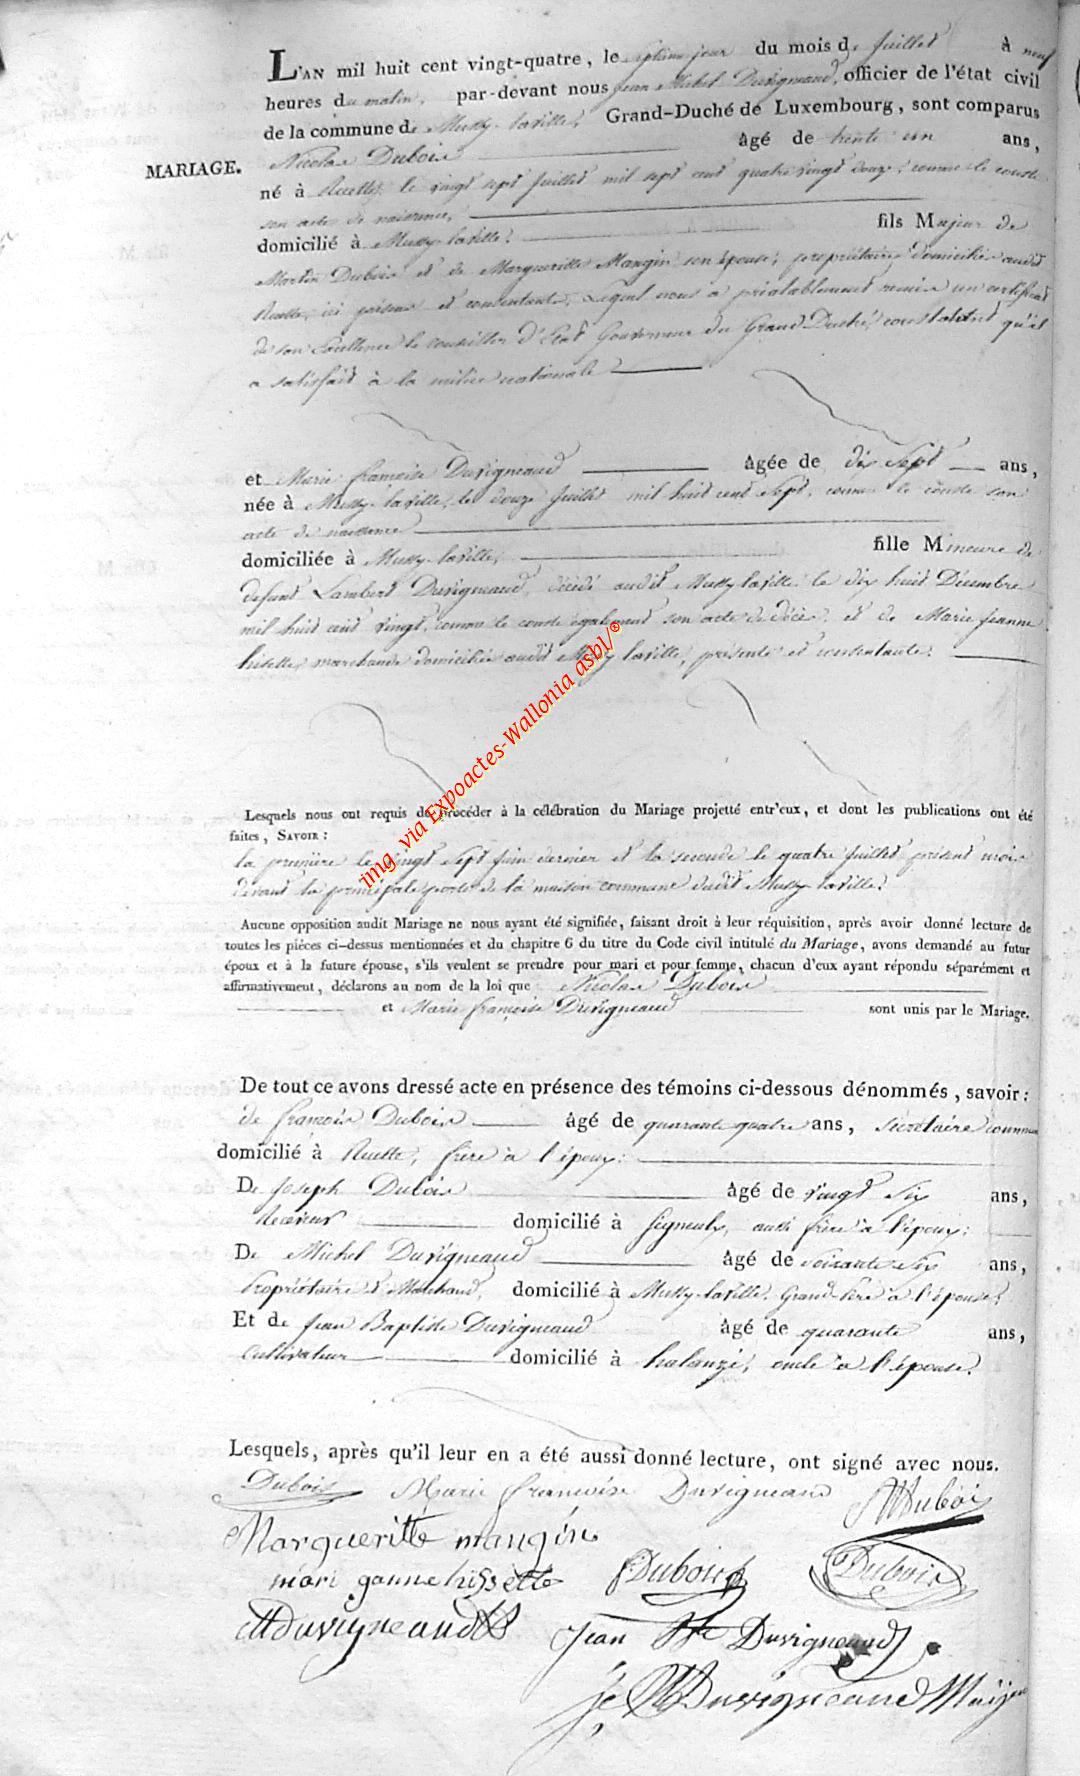 L'AN mil huit cent vingt-quatre, le septième jour du mois de Juillet à neuf
heures du matin, par-devant nous Jean Michel Duvigneaud, officier de l'état civil
de la commune de Mussy-laville, Grand-Duché de Luxembourg, sont comparus
MARIAGE.
Nicolas Dubois âgé de trente un ans,
né à Ruette, le vingt sept Juillet mil sept cent quatre vingt douze, comme le conste
son acte de naissance,
domicilié à Mussy-laville, fils Majeur de
Martin Dubois et de Margueritte Mangin son épouse, propriétaires domiciliés audit
Ruette, ici présens et consentants, Lequel nous a préalablement remis un certificat
de son Excellence le conseiller d'Etat Gouverneur du Grand-Duché, constatant qu'il
a satisfait à la milice nationale
et Marie françoise Duvigneaud âgée de dix sept ans,
née à Mussy-laville, le douze Juillet mil huit cent sept, comme le conste son
acte de naissance
domiciliée à Mussy-laville, fille Mineure de
defunt Lambert Duvigneaud, décédé audit Mussy-laville le dix huit Décembre
mil huit cent vingt, comme le conste également son acte de décès, et de Marie Jeanne
hissette, marchande domiciliée audit Mussy laville, présente et consentante.
Lesquels nous ont requis de procéder à la célébration du Mariage projetté entr'eux, et dont les publications ont été
faites, SAVOIR :
la première le vingt sept Juin dernier et la seconde le quatre Juillet présent mois
devant la principale porte de la maison commune dudit Mussy-laville.
Aucune opposition audit Mariage ne nous ayant été signifiée, faisant droit à leur réquisition, après avoir donné lecture de
toutes les pièces ci-dessus mentionnées et du chapitre 6 du titre du Code civil intitulé du Mariage, avons demandé au futur
époux et à la future épouse, s'ils veulent se prendre pour mari et pour femme, chacun d'eux ayant répondu séparément et
affirmativement, déclarons au nom de la loi que Nicolas Dubois
et Marie françoise Duvigneaud sont unis par le Mariage.
De tout ce avons dressé acte en présence des témoins ci-dessous dénommés, savoir :
de françois Dubois âgé de quarante quatre ans, secrétaire communal
domicilié à Ruette, frère à l'époux :
De Joseph Dubois âgé de vingt six ans,
Receveur domicilié à Signeulx, aussi frère à l'époux ;
De Michel Duvigneaud âgé de soixante six ans,
Propriétaire et Marchand, domicilié à Mussy-laville, Grand-Père à l'épouse,
Et de Jean Baptiste Duvigneaud âgé de quarante ans,
Cultivateur domicilié à halanzi, oncle à l'épouse.
Lesquels, après qu'il leur en a été aussi donné lecture, ont signé avec nous.
Dubois Marie françoise Duvigneaud MDuboi
Margueritte mangin
mari ganne hissette Dubois Dubois
MDuvigneaud Jean Bte Duvigneaud
JMDuvigneaud Maijeur
img via Expoactes-Wallonia asbl/®